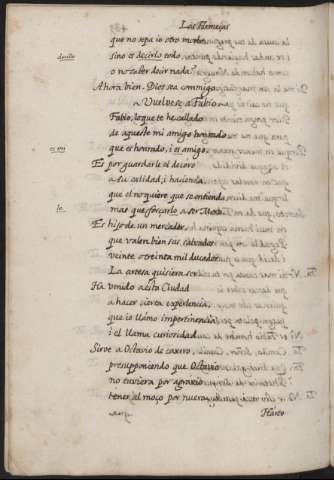 Las Firmezas
que no sepa io otro modo
sino es decirlo todo,
decillo
o no saber decir nada.
Ahora bien, Dios sea conmigo
Vuelvese a Fabio
Fabio, lo que te he callado
de aqueste mi amigo honrado
que es honrado, i es amigo,
es mi
Es por guardarle el decoro
a su calidad, i hacienda
que el no quiere que se entienda
mas que forçarlo a ser Moro.
lo
Es hijo de un mercader
que valen bien sus caudales
veinte o treinta mil ducados
La artesa quisiera ser
Ha venido a esta Ciudad
a hacer cierta experiencia,
que io llamo impertinencia
i el llama curiosidad
Sirve a Octavio de caxero,
presupponiendo que Octavio
no tuviera por agravio
tener al moço por nuera
Harto